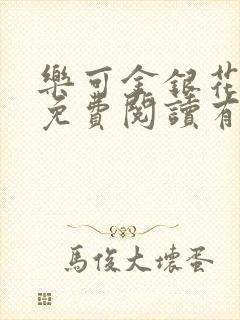 樂可金銀花
免費閱讀有
馬俊大壞蛋